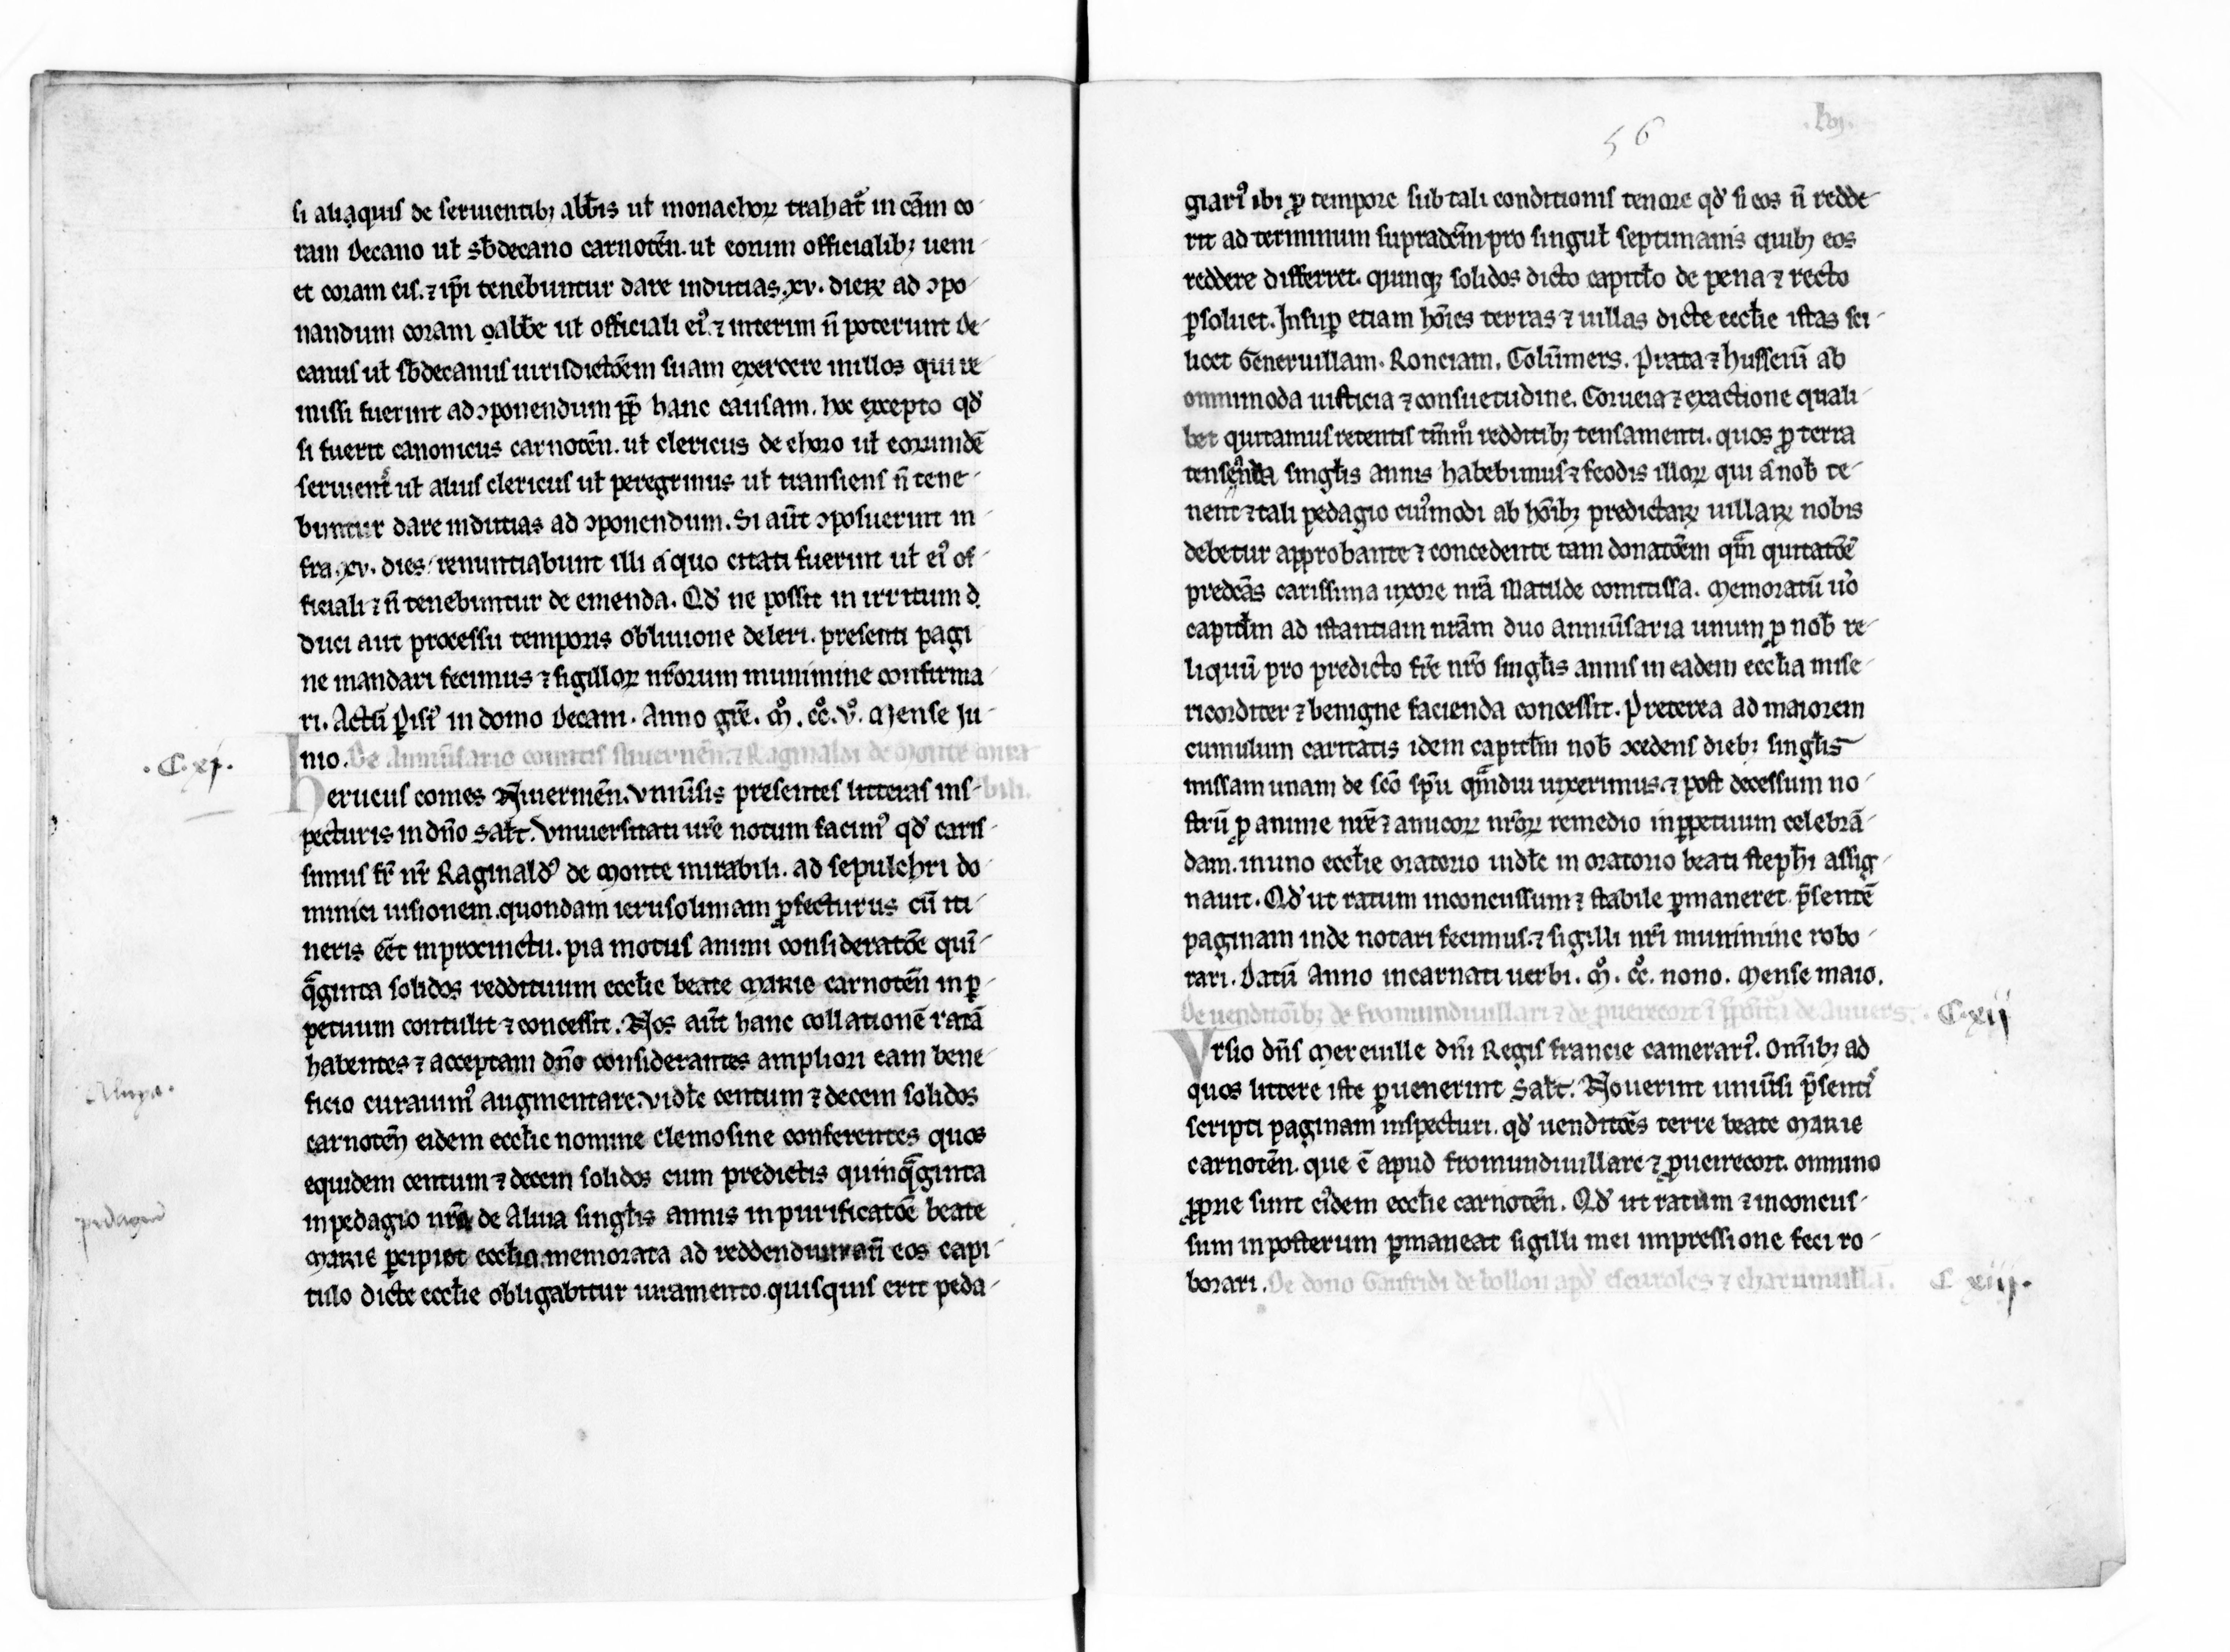 si aliaquis de seruientibꝫ abb̄is ul̄ monachoꝝ trahat᷑ in cām co-
ram decano ul̄ sb̄decano carnotēn. ul̄ eorum officialibꝫ ueni-
et coram eis. ⁊ ip̄i tenebuntur dare inducias .xv. dieꝝ ad ꝯpo-
nandum coram abb̄e ul̄ officiali ei᷒. ⁊ interim n̄ poterunt de-
canus ul̄ sb̄decanus iurisdictōem suam exercere in illos qui re-
missi fuerint ad ꝯponendum ꝓp̄ hanc causam. hoc excepto qd̕
si fuerit canonicus carnotēn. ul̄ clericus de choro ul̄ eorundē
seruient᷑ ul̄ alius clericus ul̄ peregrinus ul̄ transiens n̄ tene-
buntur dare inducias ad ꝯponendum. Si aūt ꝯposuerint in-
fra .xv. dies renuntiabunt illi a quo citati fuerint ul̄ ei᷒ of-
ficiali ⁊ n̄ tenebuntur de emenda. Qd̕ ne possit in irritum d
duci aut processu temporis obliuione deleri. presenti pagi
ne mandari fecimus ⁊ sigilloꝝ nr̄orum munimine confirma-
ri. Actū ꝑisi᷒ in domo decani. Anno gr̄e. mͦ. ccͦ. vͦ. Mense Ju-
nio. De anniūsario comitis niuernēn. ⁊ Raginaldi de Monte mira
.C.xj.
herueus comes Niuernēn. vniūsis presentes litteras ins- bili.
pecturis in dn̄o sal̄t. Vniuersitati ur̄e notum facim᷒ qd̕ caris-
simus fr̄ nr̄ Raginald᷒ de Monte mirabili. ad sepulchri do-
minici uisionem. quondam ierusolimam ꝓfecturus cū iti-
neris eēt in procinctu. pia motus animi consideratōe qui-
q̄ginta solidos reddituum eccl̄ie beate Marie carnotēn in ꝑ-
petuum contulit ⁊ concessit. Nos aūt hanc collationē ratā
habentes ⁊ acceptam dn̄o considerantes ampliori eam bene-
ficio curauim᷒ augmentare. vidl̄c centum ⁊ decem solidos
Aluya.
carnotēn eidem eccl̄ie nomine elemosine conferentes quos
equidem centum ⁊ decem solidos cum predictis quinq̄ginta
pedagiū
in pedagio nr̄o de Aluia singl̄is annis in purificatōe beate
Marie ꝑcipiet eccl̄ia memorata ad reddendum aūt eos capi-
tulo dicte eccl̄ie obligabitur iuramento. quisquis erit peda-
.lvj.
56
giari᷒ ibi ꝓ tempore sub tali conditionis tenore qd̕ si eos n̄ redde-
rit ad terminum supradcm̄ pro singul̄ septimanis quibꝫ eos
reddere differret. quinqꝫ solidos dicto capitl̄o de pena ⁊ recto
ꝑsoluet. Insuꝑ etiam hōies terras ⁊ uillas dicte eccl̄ie istas sci-
licet Generuillam. Ronciam. Colūmers. Prata ⁊ husseiū ab
omnimoda iusticia ⁊ consuetudine. Corueia ⁊ exactione quali-
bet quitamus retentis tm̄mͦ redditibꝫ tensamenti. quos ꝓ terra
tensenda singl̄is annis habebimus ⁊ feodis illoꝝ qui a nob̄ te-
nent ⁊ tali pedagio cui᷒modi ab hōibꝫ predictaꝝ uillaꝝ nobis
debetur approbante ⁊ concedente tam donatōem qm̄ quitatōē
predcās carissima uxore nr̄a Matilde comitissa. Memoratū uͦo
capitl̄m ad istantiam nr̄am duo anniūsaria unum ꝓ nob̄ re-
liquū pro predicto fr̄e nr̄o singl̄is annis in eadem eccl̄ia mise-
ricorditer ⁊ benigne facienda concessit. Preterea ad maiorem
cumulum caritatis idem capitl̄m nob̄ ꝯcedens diebꝫ singl̄is
missam unam de scō spū qm̄diu uixerimus. ⁊ post decessum no-
strū ꝓ anime nr̄e ⁊ amicoꝝ nr̄oꝝ remedio in ꝑpetuum celebrā-
dam. in uno eccl̄ie oratorio uidl̄c in oratorio beati steph̄i assig-
nauit. Qd̕ ut ratum inconcussum ⁊ stabile ꝑmaneret p̄sentē
paginam inde notari fecimus. ⁊ sigilli nr̄i munimine robo-
rari. Datū Anno incarnati uerbi. mͦ. ccͦ. nono. Mense maio.
De uenditōibꝫ de fromundiuillari ⁊ de puerecort ī p̄positᷓa de Auuers. .C.xij
Vrsio dn̄s Mereuille dn̄i Regis francie camerari᷒. Omībꝫ ad
quos littere iste ꝑuenerint sal̄t. Nouerint uniūsi p̄senti᷒
scripti paginam inspecturi. qd̕ uenditōēs terre beate Marie
carnotēn. que ē apud fromundiuillare ⁊ pueirecort. omnino
ꝓprie sunt ei᷒dem eccl̄ie carnotēn. Qd̕ ut ratum ⁊ inconcus-
sum in posterum ꝑmaneat sigilli mei impressione feci ro-
borari. De dono Gaufridi de bollou apd̕ escuroles ⁊ charumuill̄a. C xiij.